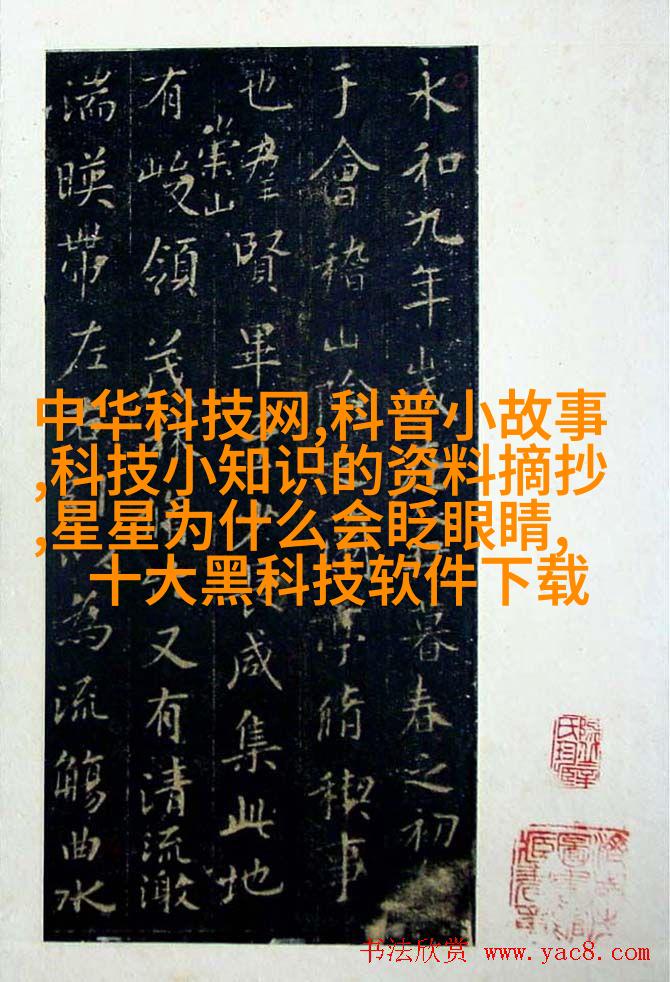 永和九年歲暮春之初
于會稽山陰亭脩稧事
也羣賢畢咸集此地
有崇山峻領茂又有清流激
湍暎帶左右為流觴曲水
中华科技网,科普小故事
,科技小知识的资料摘抄
,星星为什么会眨眼睛,
十大黑科技软件下载
书法欣赏 www.yac8.com